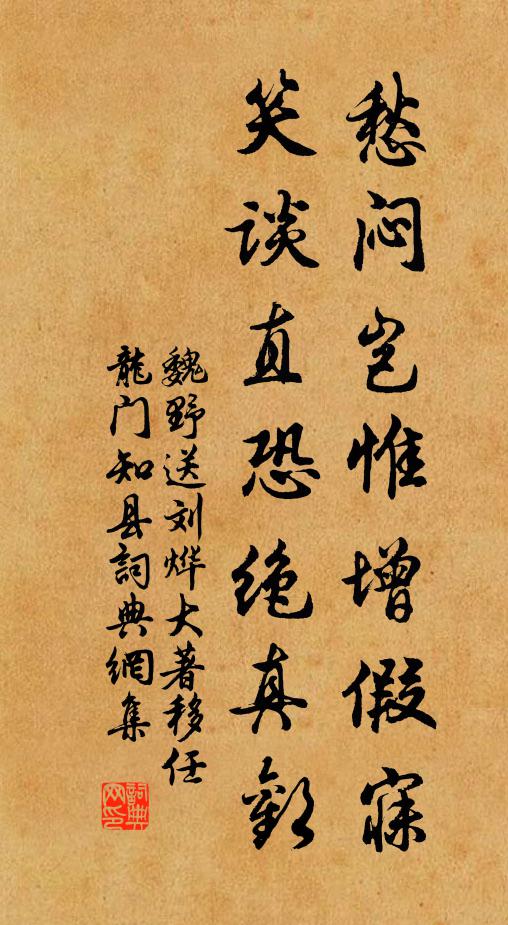 愁闷岂惟增假寐
笑谈直恐绝真歡
魏野送刘烨大著移任
龍门知县詞典網集
詞典
网印